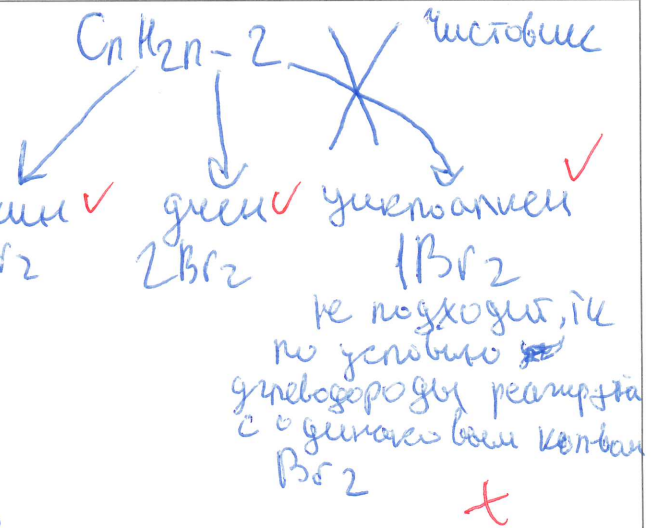 CnH2n-2 Чистовик
ин диен циклоалкен
r2 2Br2 1Br2
не подходит, тк
по условию
углеводороды реагируют
с одинаковым кол-вом
Br2